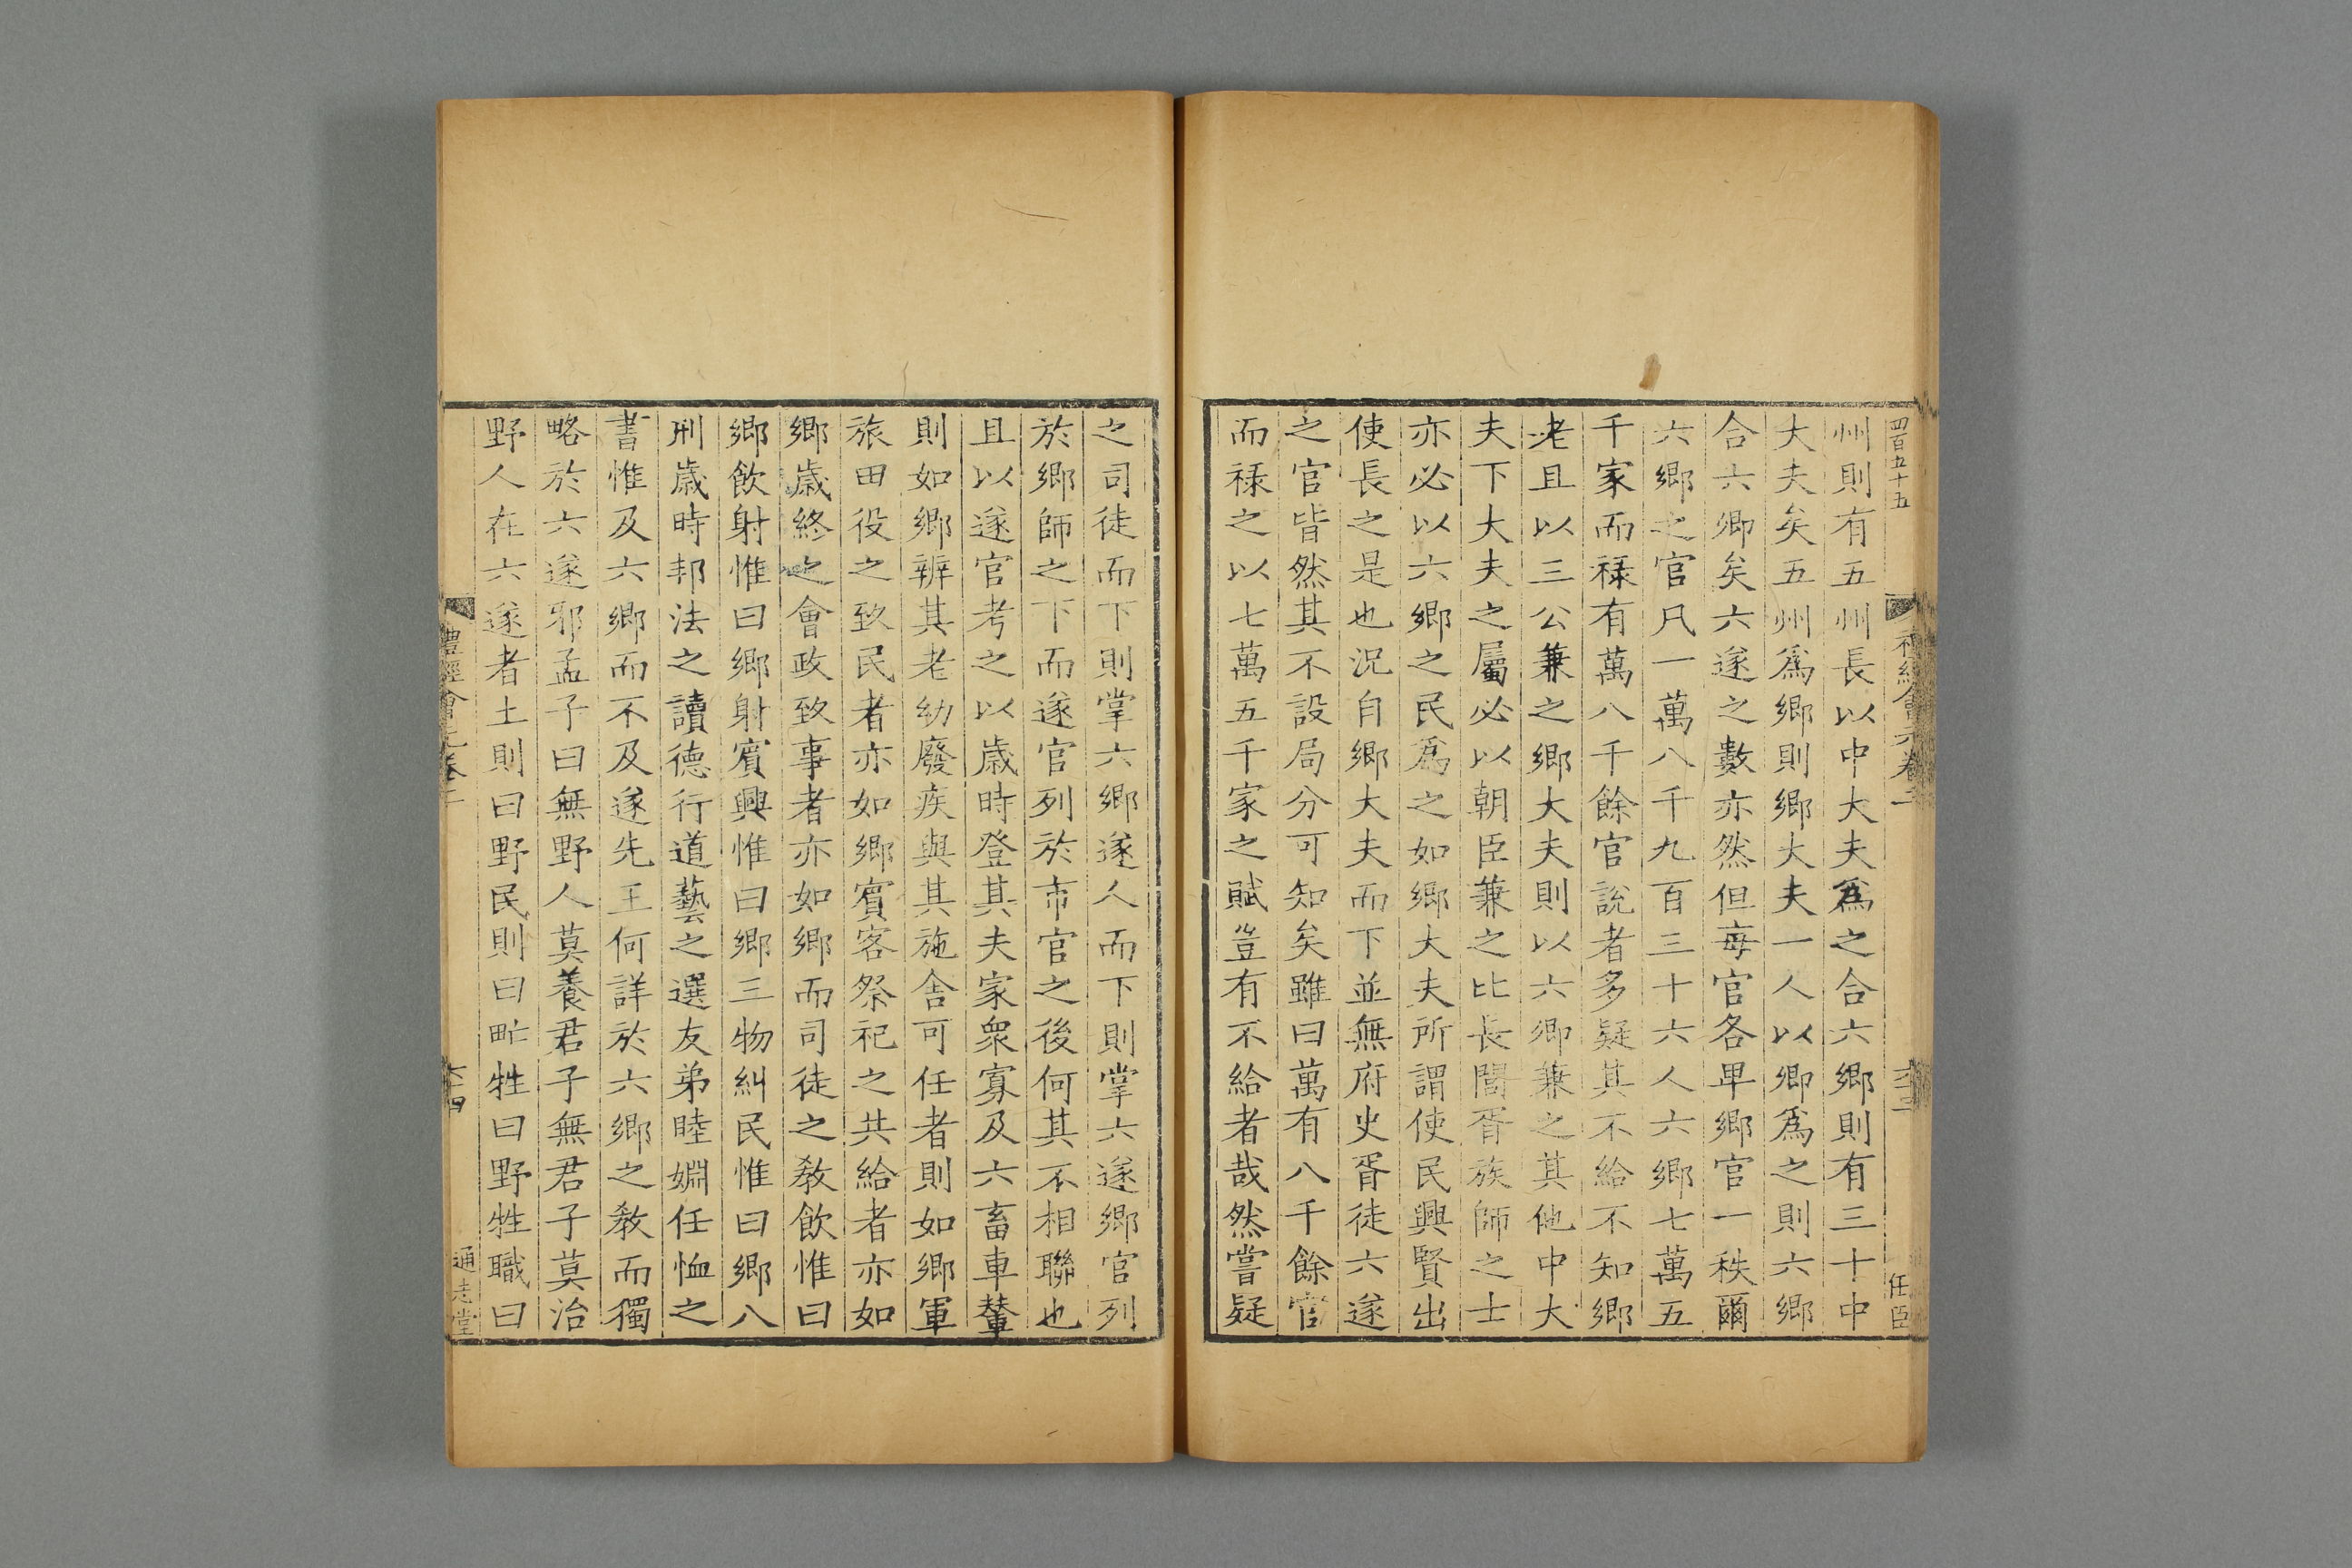 四百五十五
州則有五州長以中大夫爲之合六鄉則有三十中
大夫矣五州爲鄉則鄉大夫一人以卿爲之則六鄉
合六卿矣六遂之數亦然但每官各卑鄉官一秩爾
六鄉之官凡一萬八千九百三十六人六鄉七萬五
千家而祿有萬八千餘官說者多疑其不給不知鄉
老且以三公兼之鄉大夫則以六卿兼之其他中大
夫下大夫之屬必以朝臣兼之比長閭胥族師之士
亦必以六鄉之民爲之如鄉大夫所謂使民興賢出
使長之是也況自鄉大夫而下並無府史胥徒六遂
之官皆然其不設局分可知矣雖曰萬有八千餘官
而祿之以七萬五千家之賦豈有不給者哉然嘗疑
任臣
之司徒而下則掌六鄉遂人而下則掌六遂鄉官列
於鄉師之下而遂官列於市官之後何其不相聯也
且以遂官考之以歲時登其夫家衆寡及六畜車輦
則如鄉辨其老幼廢疾與其施舍可任者則如鄉軍
旅田役之致民者亦如鄉賓客祭祀之共給者亦如
鄉歲終之會政致事者亦如鄉而司徒之敎飲惟曰
鄉飲射惟曰鄉射賓興惟曰鄉三物糾民惟曰鄉八
刑歲時邦法之讀德行道藝之選友弟睦婣任恤之
書惟及六鄉而不及遂先王何詳於六鄉之敎而獨
略於六遂邪孟子曰無野人莫養君子無君子莫治
野人在六遂者土則曰野民則曰甿牲曰野牲職曰
禮經會元卷二
六十四
通志堂